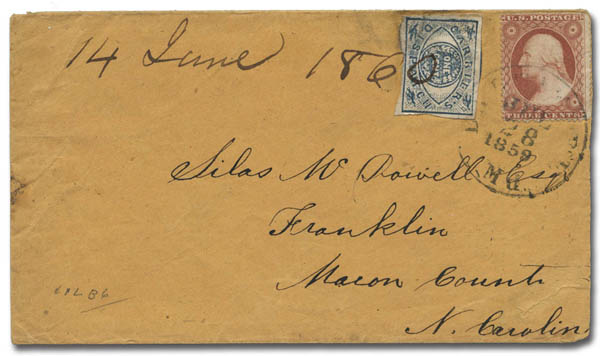 14 June 1860
U.S. POSTAGE
THREE CENTS
CARRIER'S
8
1859
Mд.
Silas Mc Dowell Esq
Franklin
Macon County
N. Carolin